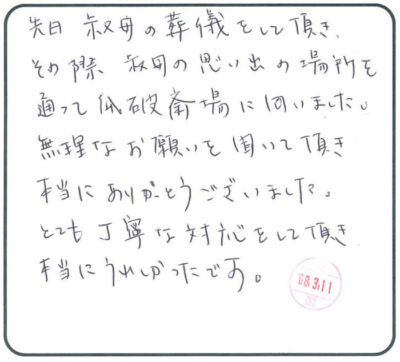 先日 叔母の葬儀をして頂き、
その際 叔母の思い出の場所を
通って瓜破斎場に向いました。
無理なお願いを聞いて頂き
本当にありがとうございました。
とても丁寧な対応をして頂き
本当にうれしかったです。
3.11